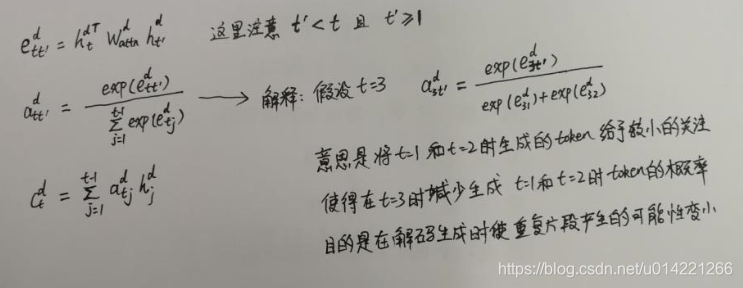 e^d_{tt'} = h^{dT}_t W^d_{attn} h^d_{t'} 这里注意 t'<t 且 t'≥1
a^d_{tt'} = exp(e^d_{tt'}) / Σ_{j=1}^{t-1} exp(e^d_{tj}) ⟶ 解释: 假设 t=3 a^d_{3t'} = exp(e^d_{3t'}) / exp(e^d_{31})+exp(e^d_{32})
意思是将t=1和t=2时生成的token给予较小的关注
c^d_t = Σ_{j=1}^{t-1} a^d_{tj} h^d_j 使得在t=3时减少生成 t=1和t=2时token的概率
目的是在解码生成时使重复片段产生的可能性变小
https://blog.csdn.net/u014221266